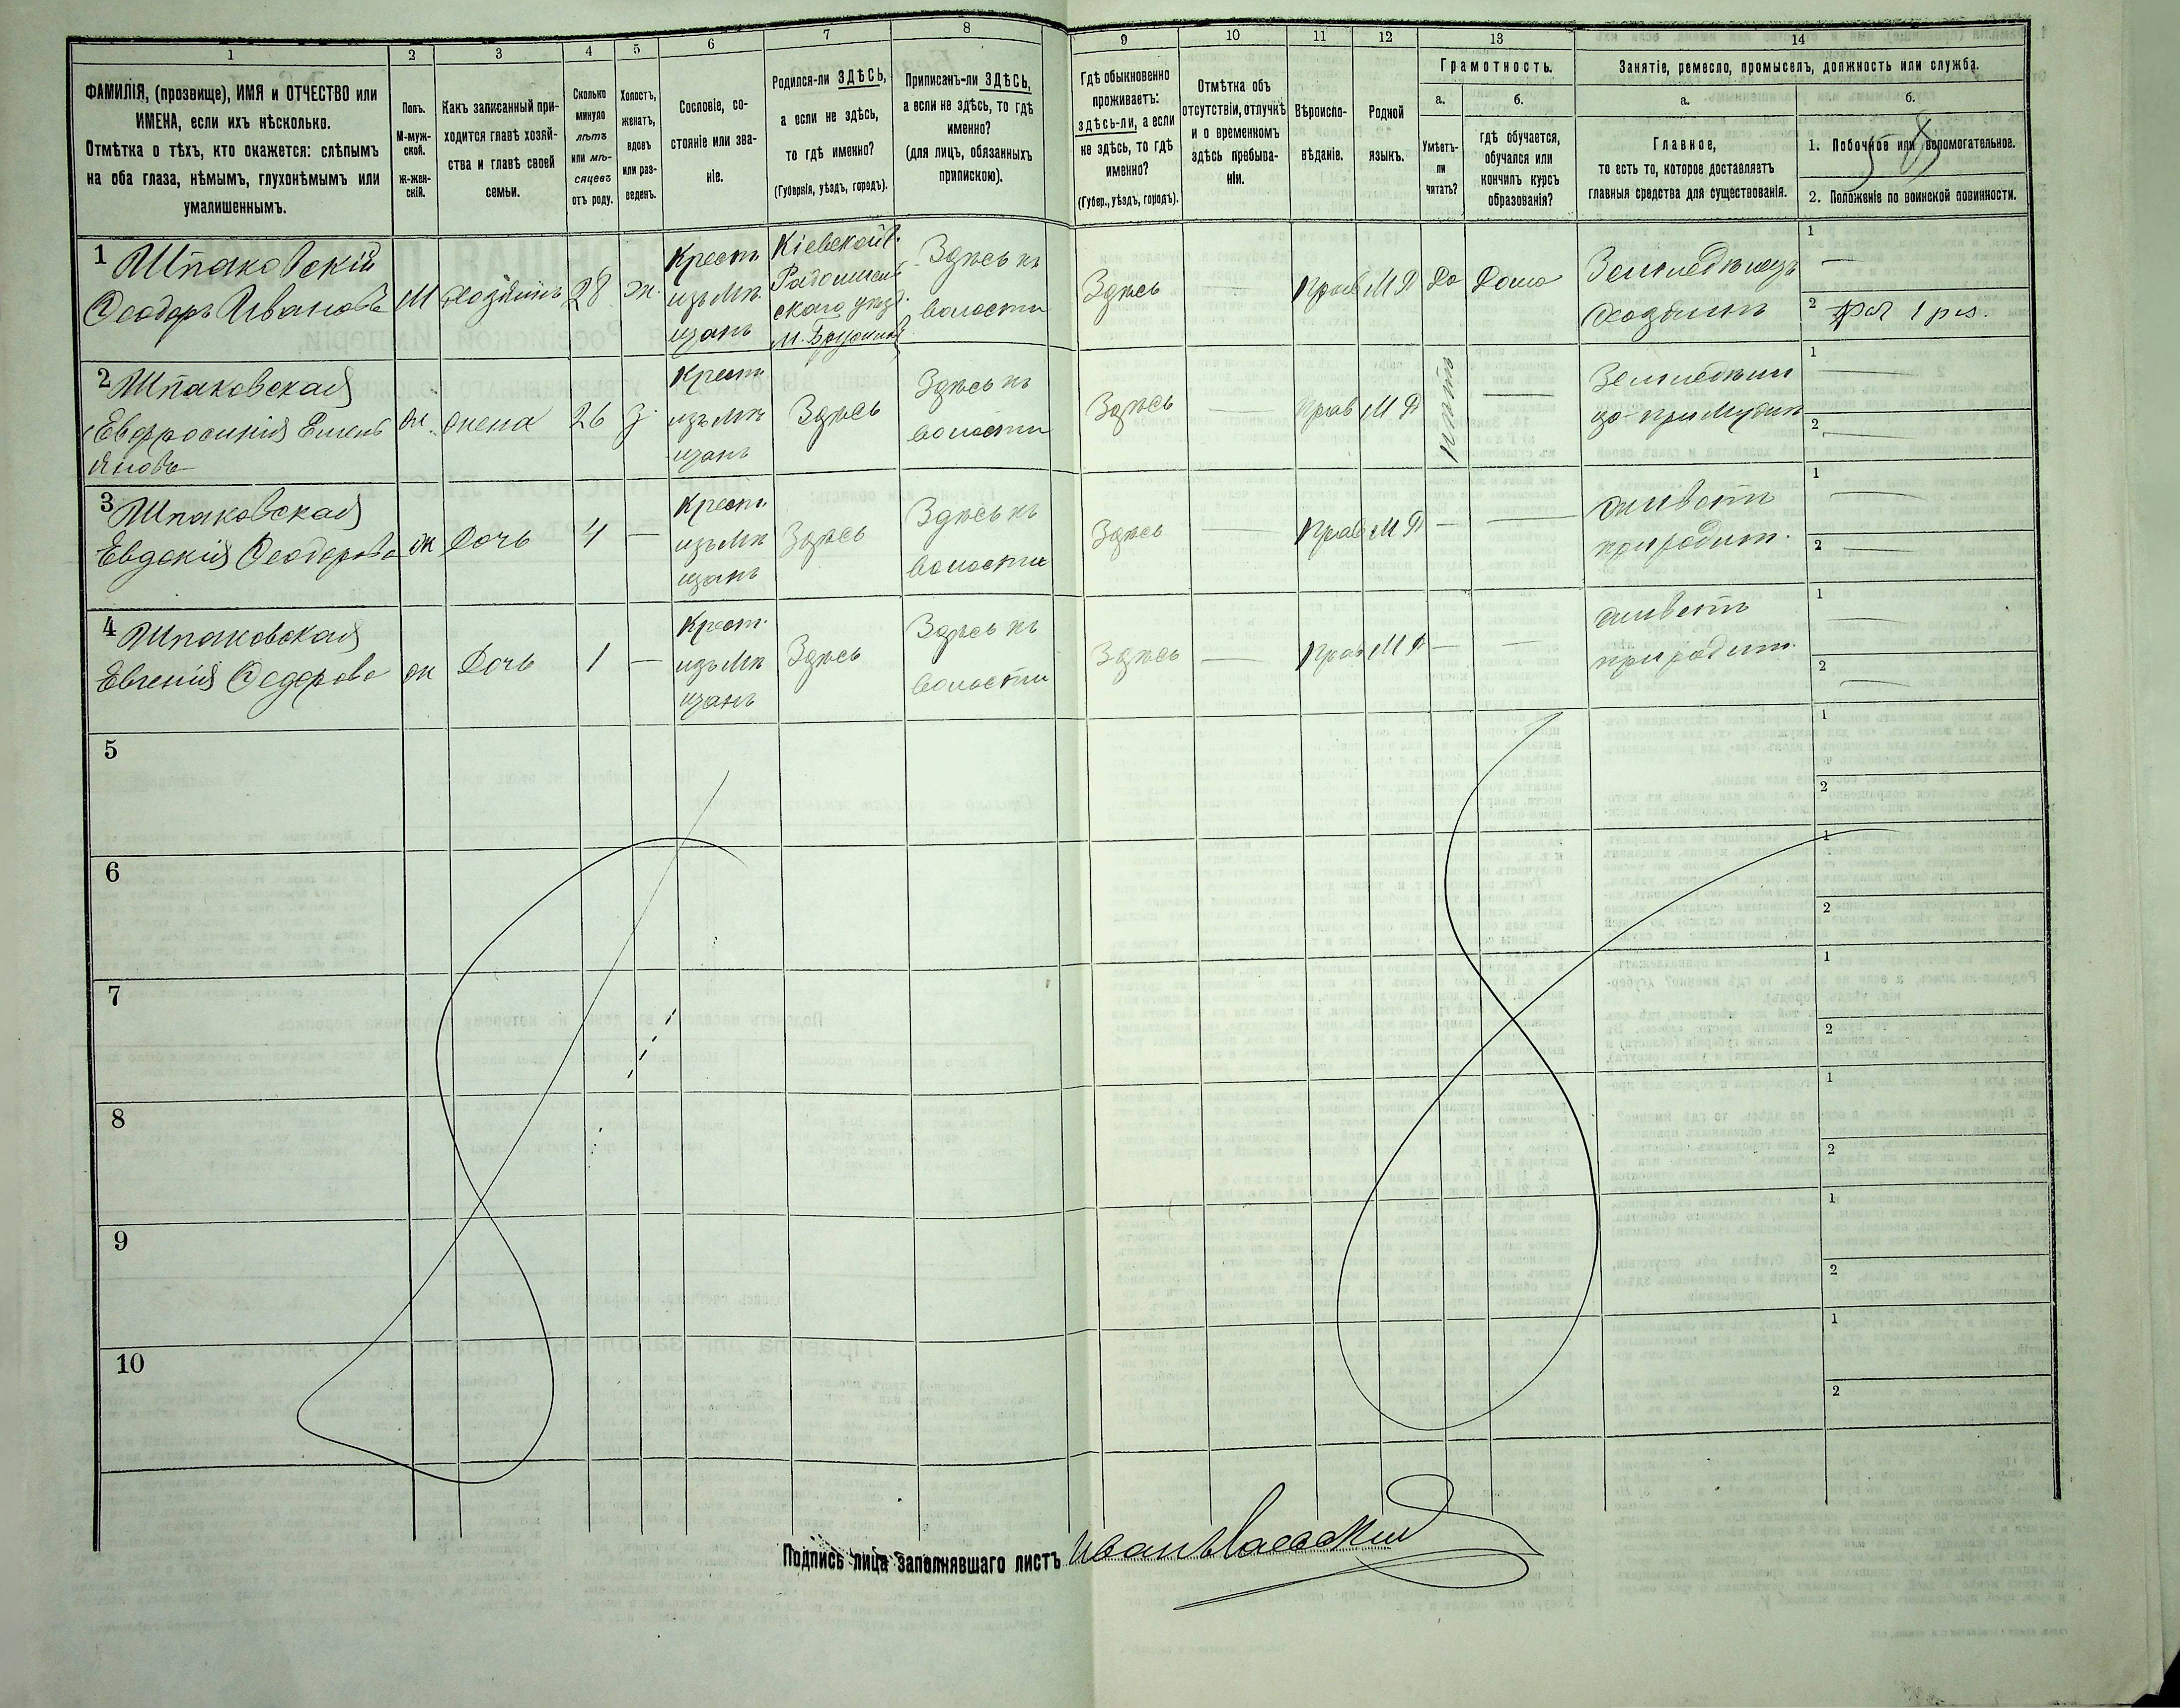 1 2 3 4 5 6 7 8 9 10 11 12 13 14
ФАМИЛІЯ, (прозвище), ИМЯ и ОТЧЕСТВО или
ИМЕНА, если ихъ нѣсколько.
Отмѣтка о тѣхъ, кто окажется: слѣпымъ
на оба глаза, нѣмымъ, глухонѣмымъ или
умалишеннымъ.
Полъ.
М-муж-
ской.
ж-жен-
скій.
Какъ записанный при-
ходится главѣ хозяй-
ства и главѣ своей
семьи.
Сколько
минуло
лѣтъ
или мѣ-
сяцевъ
отъ роду.
Холостъ,
женатъ,
вдовъ
или раз-
веденъ.
Сословіе, со-
стояніе или зва-
ніе.
Родился-ли ЗДѢСЬ,
а если не здѣсь,
то гдѣ именно?
(Губернія, уѣздъ, городъ).
Приписанъ-ли ЗДѢСЬ,
а если не здѣсь, то гдѣ
именно?
(для лицъ, обязанныхъ
припискою).
Гдѣ обыкновенно
проживаетъ:
здѣсь-ли, а если
не здѣсь, то гдѣ
именно?
(Губер., уѣздъ, городъ).
Отмѣтка объ
отсутствіи, отлучкѣ
и о временномъ
здѣсь пребыва-
ніи.
Вѣроиспо-
вѣданіе.
Родной
языкъ.
Грамотность.
а.
Умѣетъ-
ли
читать?
б.
гдѣ обучается,
обучался или
кончилъ курсъ
образованія?
Занятіе, ремесло, промыселъ, должность или служба.
а.
Главное,
то есть то, которое доставляетъ
главныя средства для существованія.
б.
58
1. Побочное или вспомогательное.
2. Положеніе по воинской повинности.
1
Шпаковскій
Феодоръ Ивановъ
М
хозяинъ
28
ж.
Крест
изъ Мѣ
щанъ
Кіевской г.
Радомысль
скаго уѣзд.
Здѣсь къ
волости
Здѣсь
—
Прав
МР
Да
Дома
Земледѣлецъ
хозяинъ
1
—
2
2
Шпаковская
Евфросинія Емель
янова
ж
жена
26
з
Крест
изъ Мѣ
щанъ
Здѣсь
Здѣсь къ
волости
Здѣсь
—
Прав
МР
нѣтъ
—
Земледѣли
ца при Мужѣ
1
—
2
—
3
Шпаковская
Евдокія Феодорова
ж
Дочь
4
—
Крест
изъ Мѣ
щанъ
Здѣсь
Здѣсь къ
волости
Здѣсь
—
Прав
МР
—
—
живетъ
при родит.
1
—
2
—
4
Шпаковская
Евгенія Федорова
ж
Дочь
1
—
Крест.
изъ Мѣ
щанъ
Здѣсь
Здѣсь къ
волости
Здѣсь
—
Прав
МР
—
—
живетъ
при родит.
1
—
2
—
5
1
2
6
1
2
7
1
2
8
1
2
9
1
2
10
1
2
Подпись лица заполнявшаго листъ
Иванъ